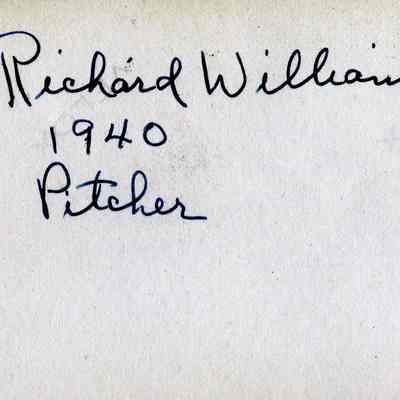 Richard William
1940
Pitcher